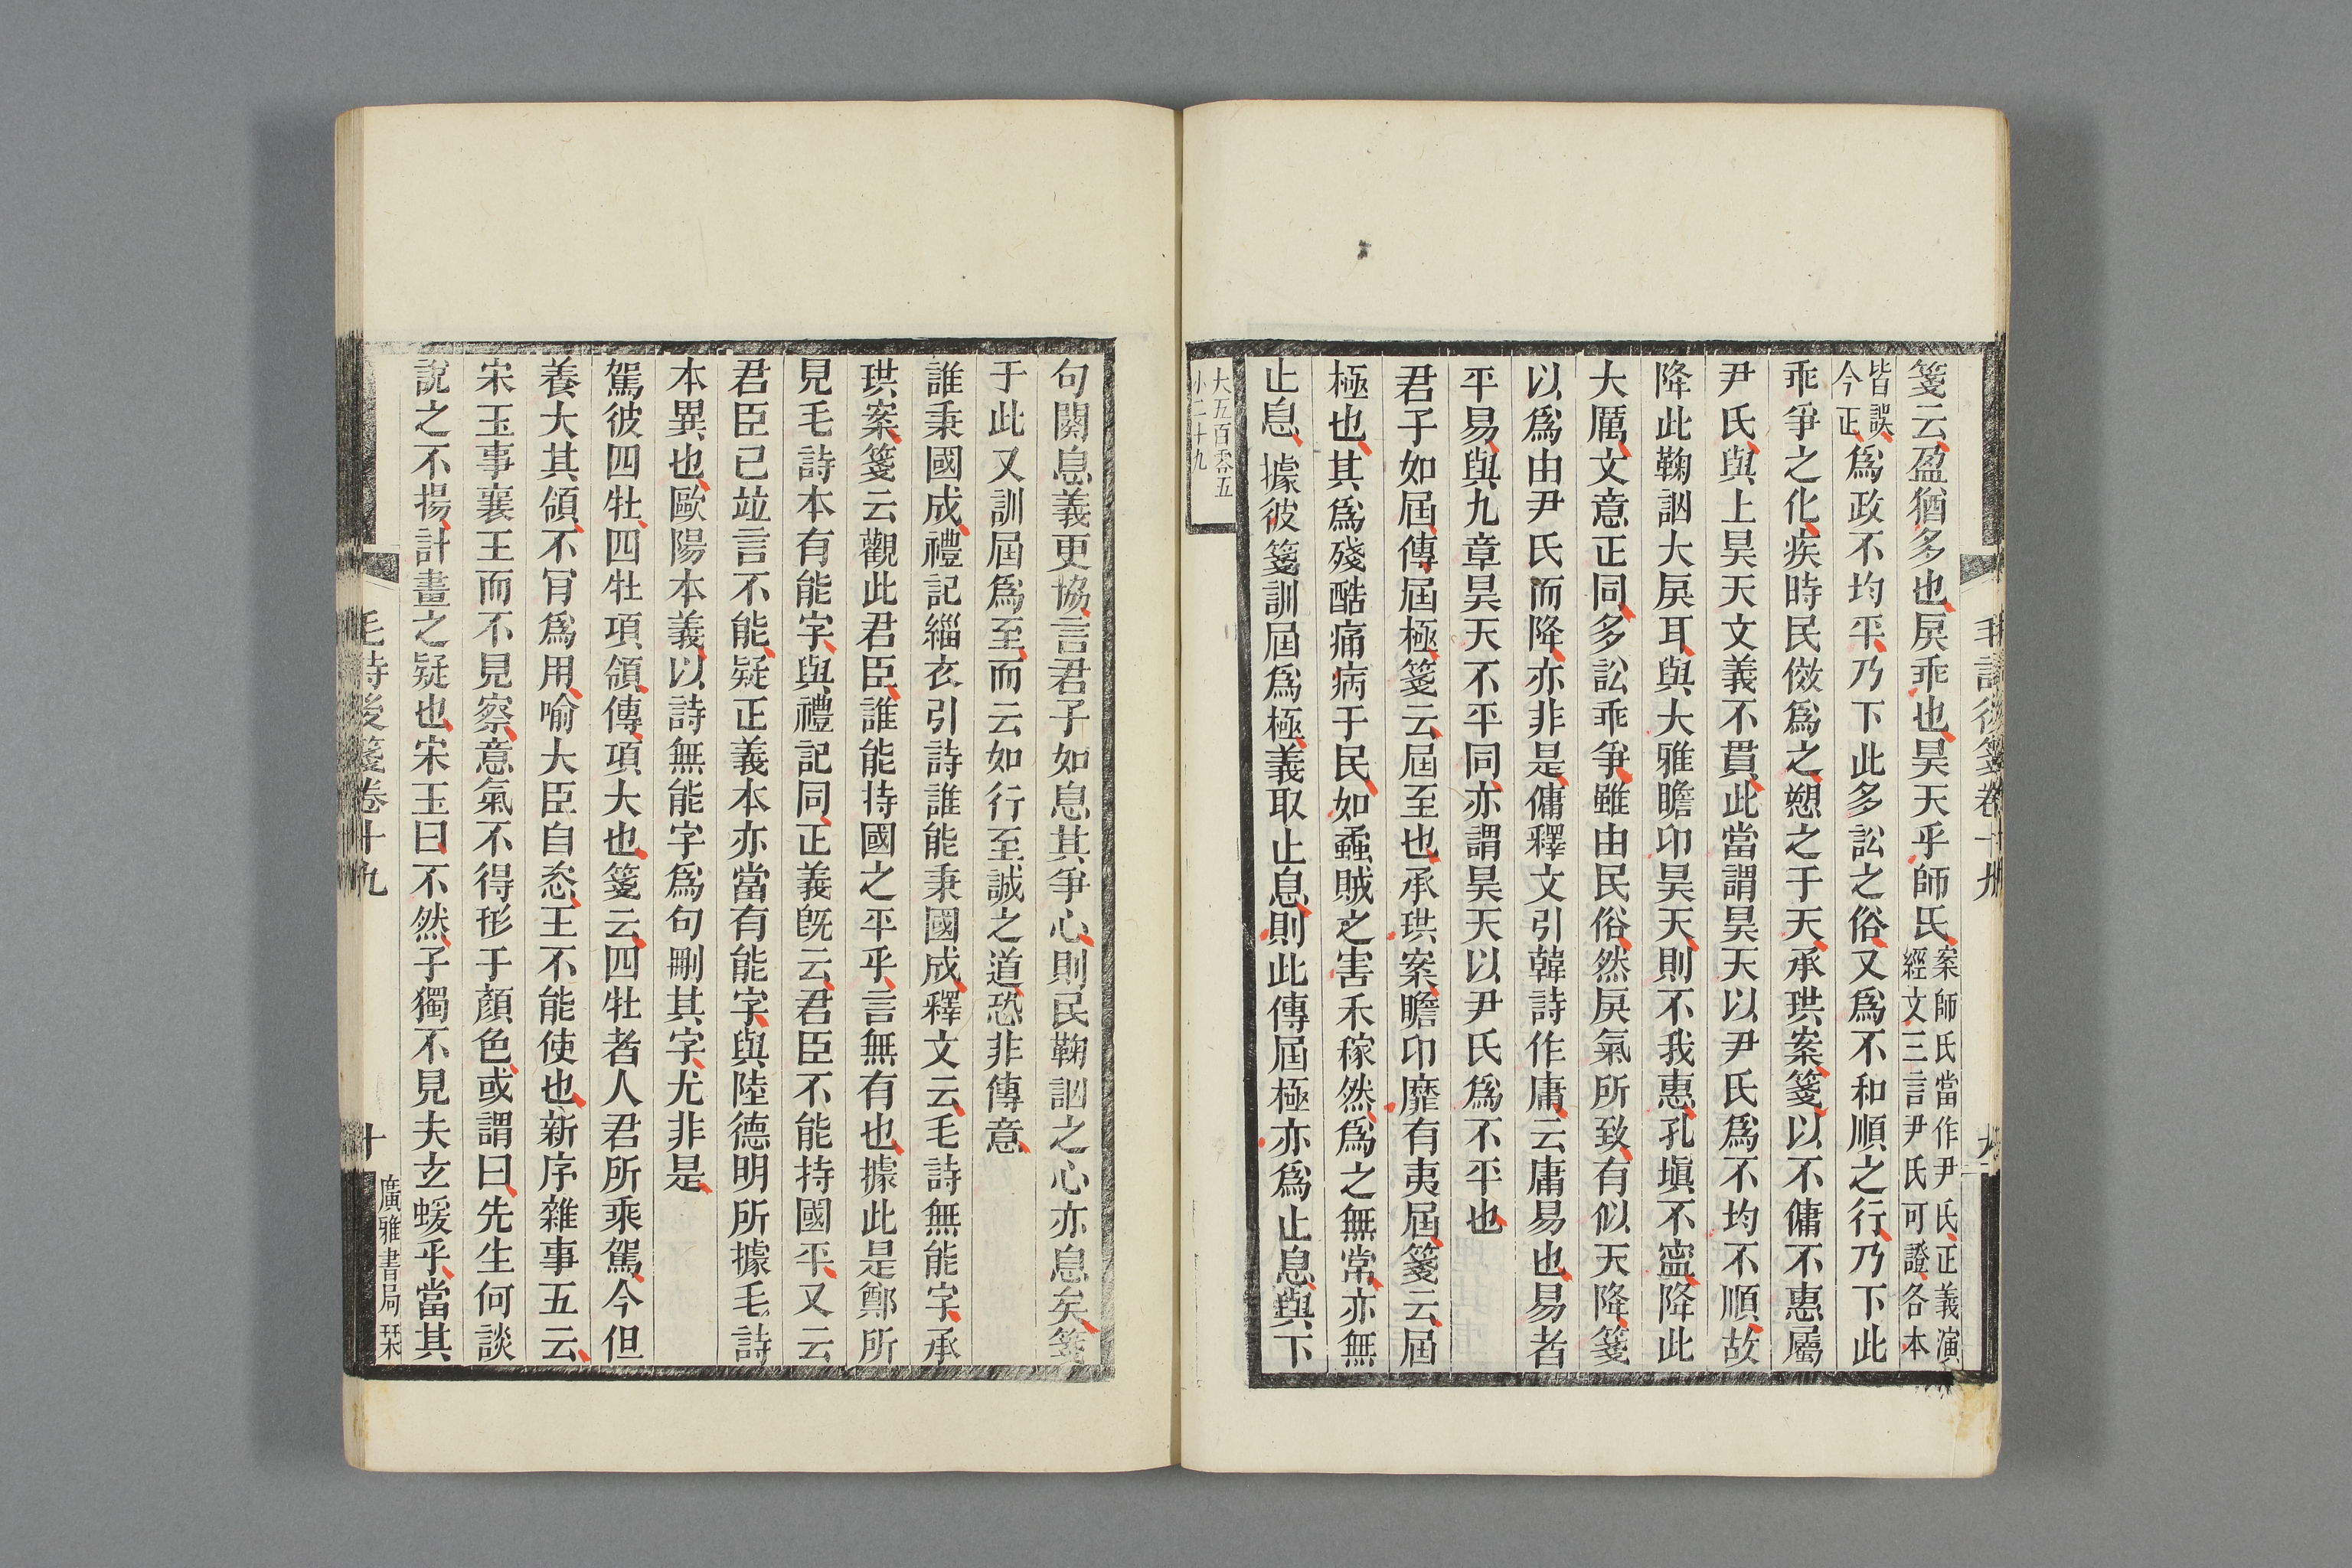 毛詩後箋卷十九
九
箋云盈猶多也戾乖也昊天乎師氏案師氏當作尹氏正義演
經文三言尹氏可證各本
皆誤
今正爲政不均平乃下此多訟之俗又爲不和順之行乃下此
乖爭之化疾時民傚爲之愬之于天承珙案箋以不傭不惠屬
尹氏與上昊天文義不貫此當謂昊天以尹氏爲不均不順故
降此鞠訩大戾耳與大雅瞻卬昊天則不我惠孔塡不寧降此
大厲文意正同多訟乖爭雖由民俗然戾氣所致有似天降箋
以爲由尹氏而降亦非是傭釋文引韓詩作庸云庸易也易者
平易與九章昊天不平同亦謂昊天以尹氏爲不平也
君子如屆傳屆極箋云屆至也承珙案瞻卬靡有夷屆箋云屆
極也其爲殘酷痛病于民如蟊賊之害禾稼然爲之無常亦無
止息據彼箋訓屆爲極義取止息則此傳屆極亦爲止息與下
大五百零五
小二十九
句闋息義更協言君子如息其爭心則民鞠訩之心亦息矣箋
于此又訓屆爲至而云如行至誠之道恐非傳意
誰秉國成禮記緇衣引詩誰能秉國成釋文云毛詩無能字承
珙案箋云觀此君臣誰能持國之平乎言無有也據此是鄭所
見毛詩本有能字與禮記同正義旣云君臣不能持國平又云
君臣已竝言不能疑正義本亦當有能字與陸德明所據毛詩
本異也歐陽本義以詩無能字爲句刪其字尤非是
駕彼四牡四牡項領傳項大也箋云四牡者人君所乘駕今但
養大其領不肎爲用喻大臣自恣王不能使也新序雜事五云
宋玉事襄王而不見察意氣不得形于顏色或謂曰先生何談
說之不揚計畫之疑也宋玉曰不然子獨不見夫玄蝯乎當其
毛詩後箋卷十九
十
廣雅書局栞